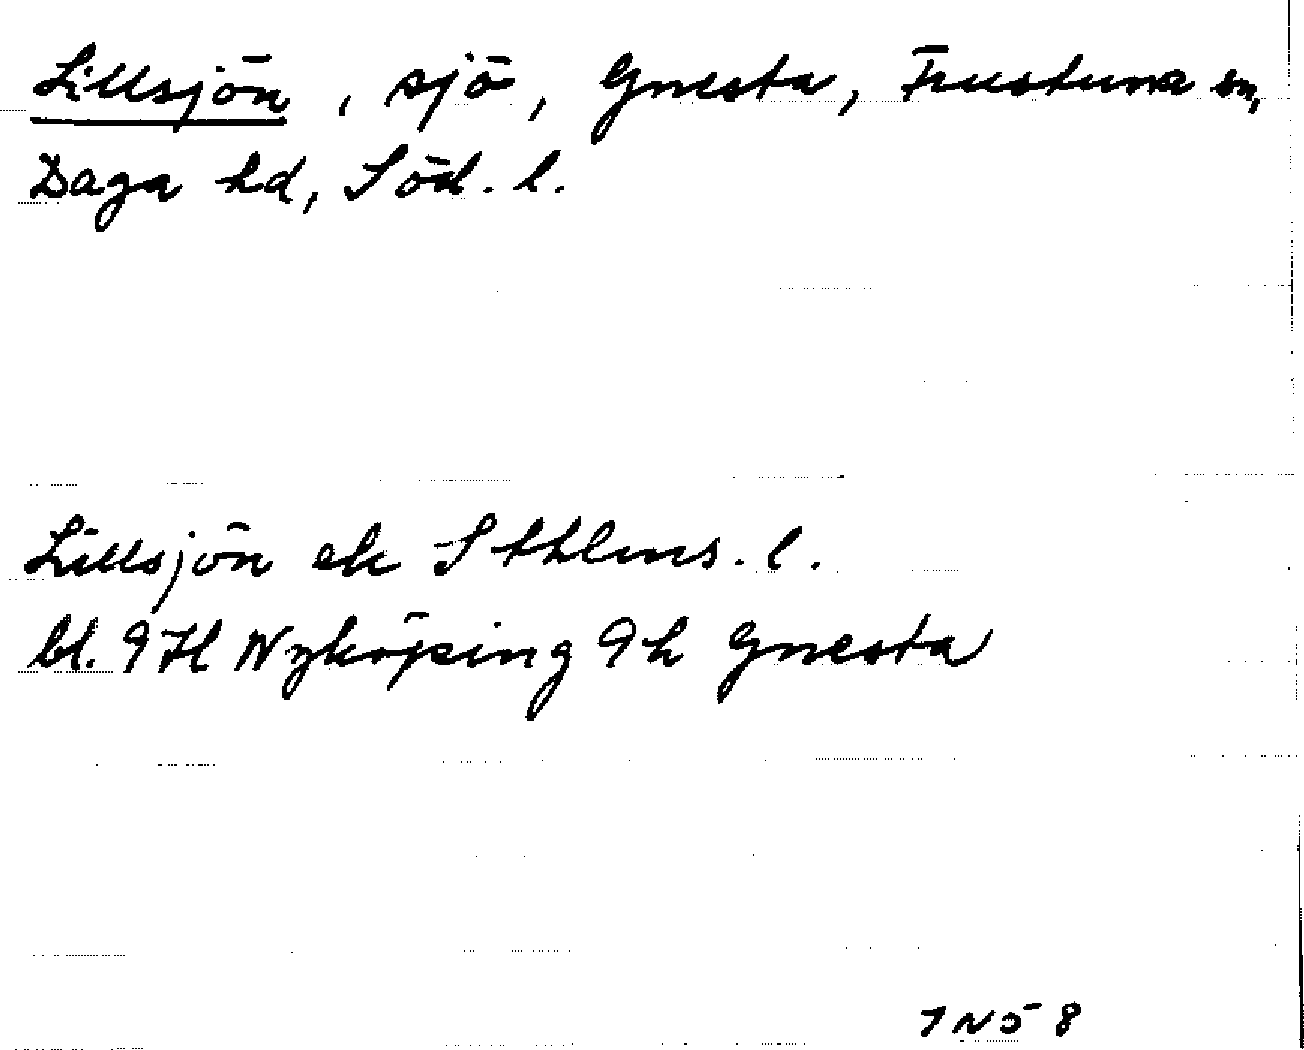 Lillsjön, sjö, Gnesta, Frustuna sn,
Daga hd, Söd. l.
Lillsjön ek Sthlms. l.
bl. 9H Nyköping 9h Gnesta